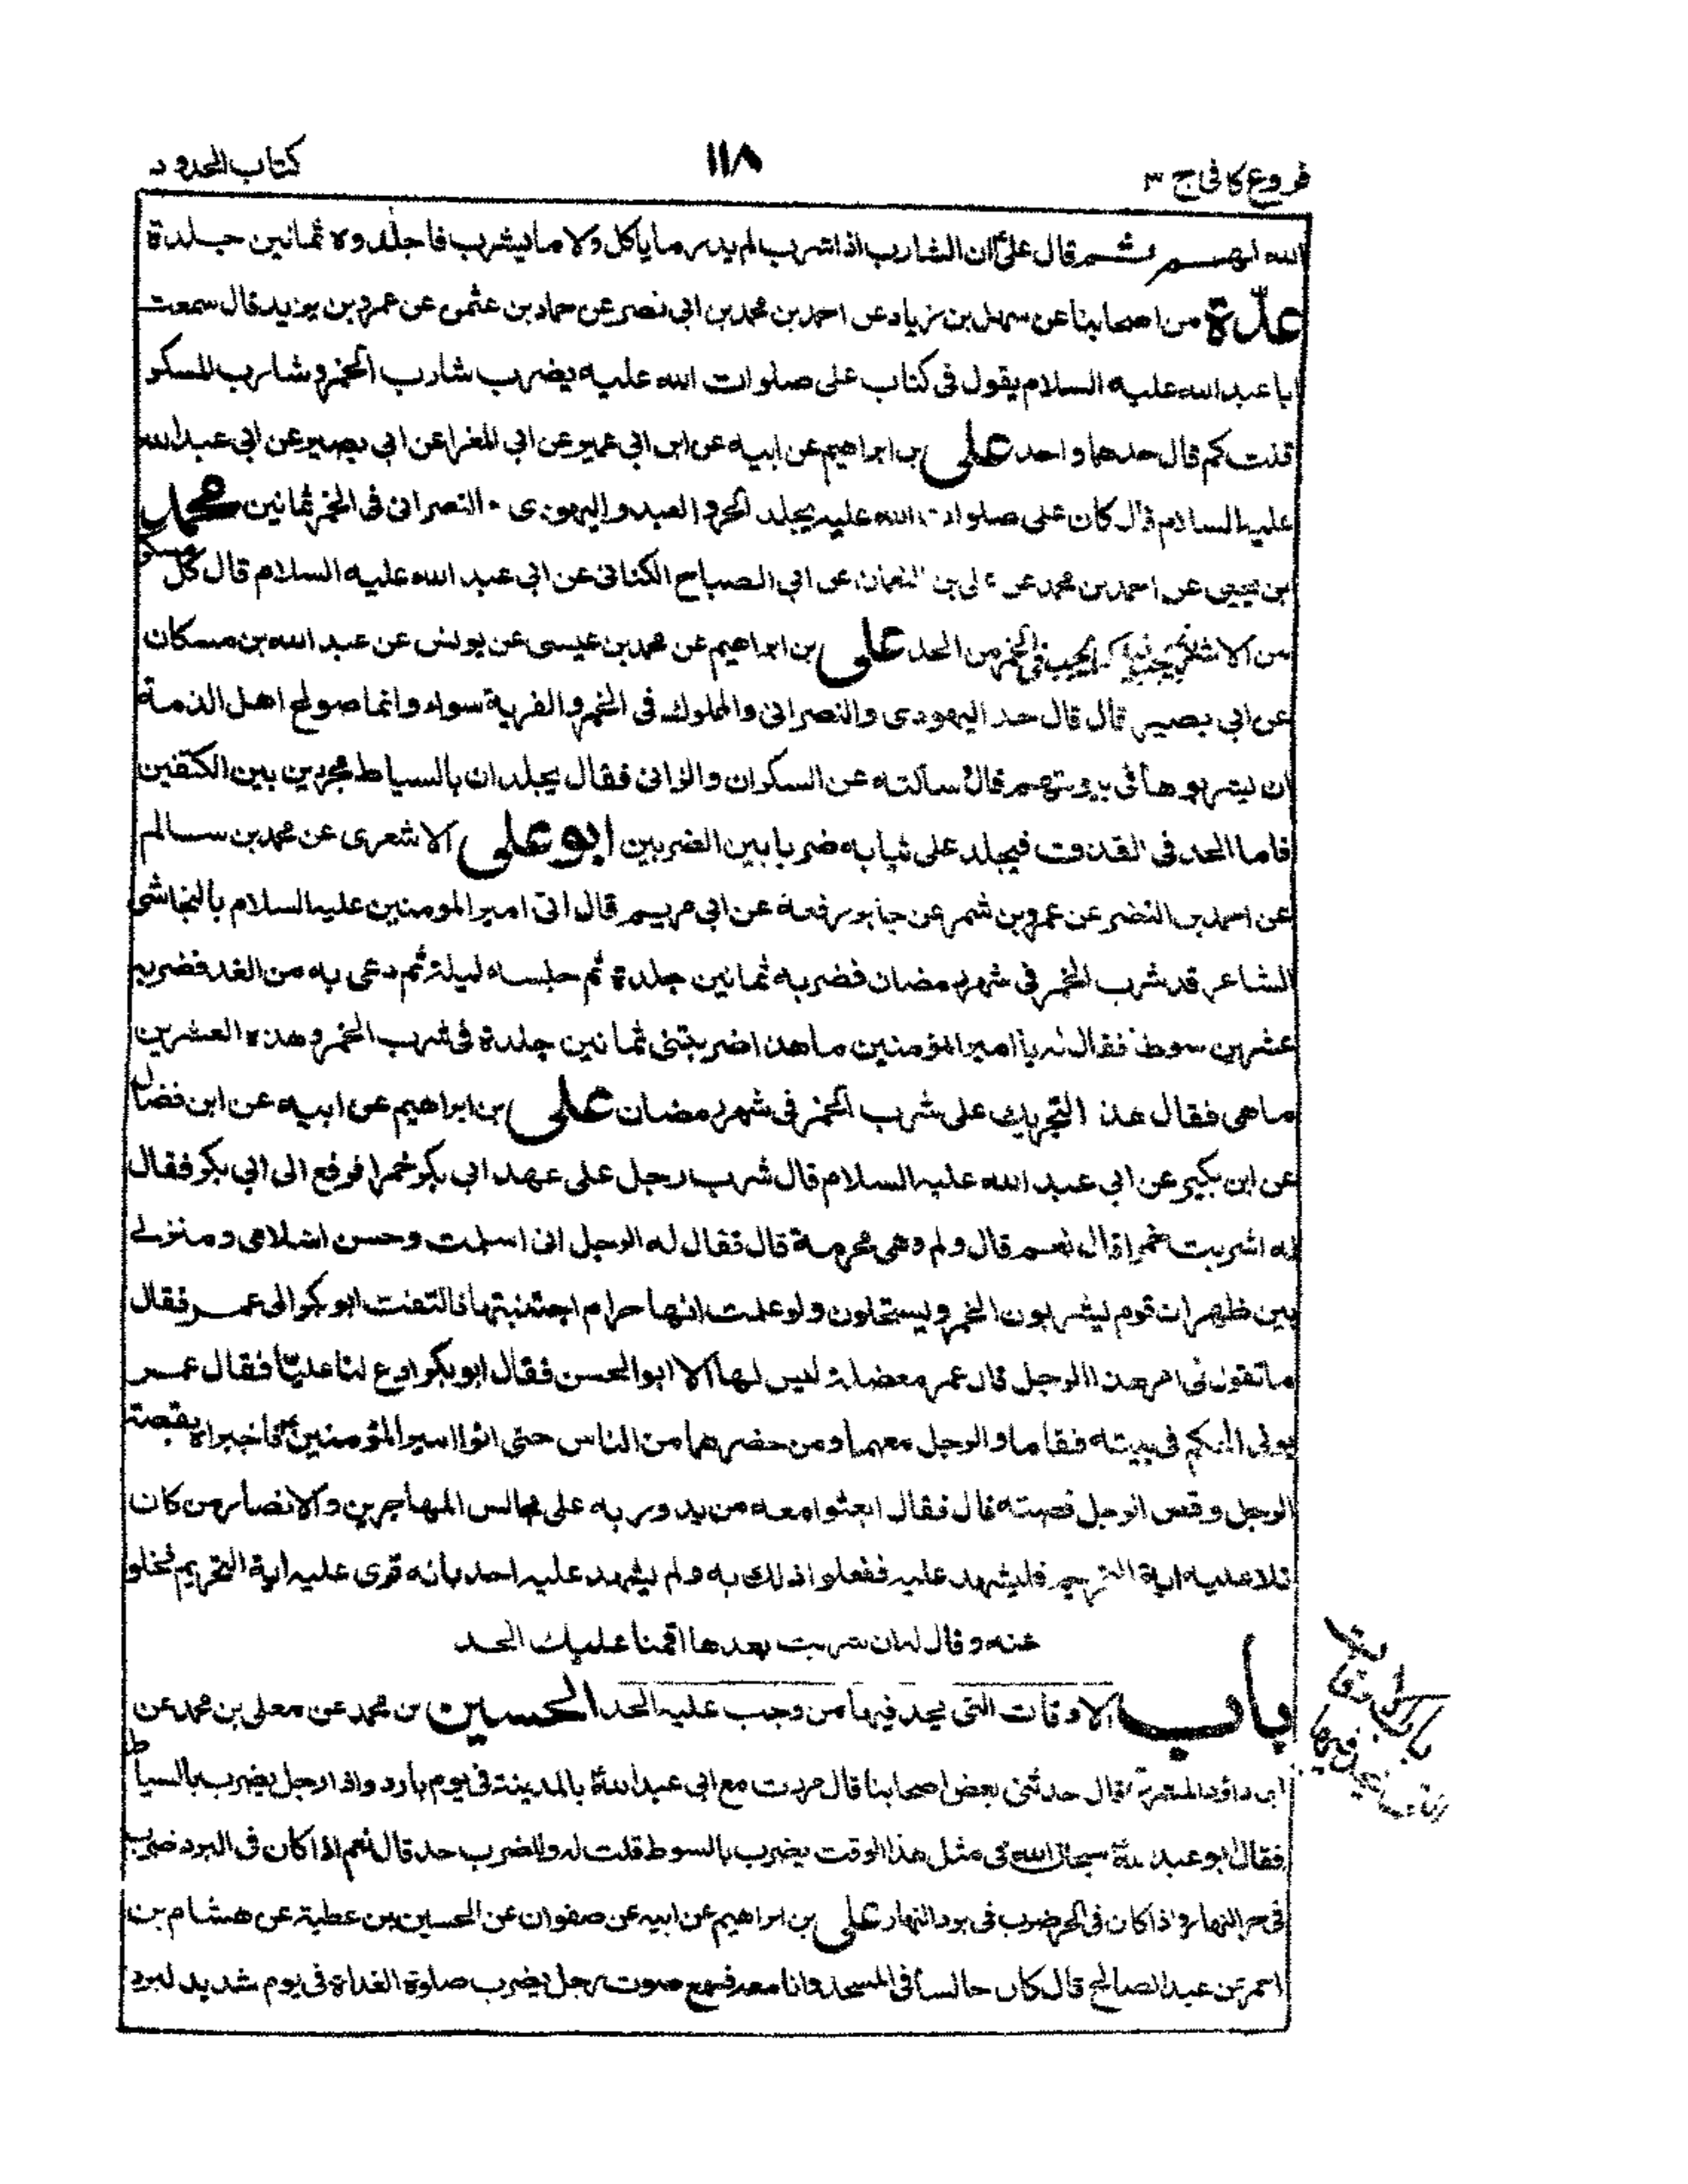 فروع كافى ج ٣
١١٨
كتاب الحدود
الله لهم ثم قال علىؑ ان الشارب اذا شرب لم يدر ما ياكل ولا ما يشرب فاجلدوه ثمانين جلدة
عدّة من اصحابنا عن سهل بن زياد عن احمد بن محمد بن ابى نصر عن حماد بن عثمن عن عمرو بن يزيد قال سمعت
ابا عبد الله عليه السلام يقول فى كتاب على صلوات الله عليه يضرب شارب الخمر وشارب المسكر
قلت كم قال حدهما واحد على بن ابراهيم عن ابيه عن ابن ابى عمير عن ابى المغرا عن ابى بصير عن ابى عبد الله
عليه السلام قال كان على صلوات الله عليه يجلد الحر والعبد واليهودى والنصرانى فى الخمر ثمانين محمد
بن يحيى عن احمد بن محمد عن على بن النعمان عن ابى الصباح الكنانى عن ابى عبد الله عليه السلام قال كل مسكر
من الاشربة يجب فيه كما يجب فى الخمر من الحد على بن ابراهيم عن محمد بن عيسى عن يونس عن عبد الله بن مسكان
عن ابى بصير قال قال حد اليهودى والنصرانى والمملوك فى الخمر والفرية سواء وانما صولح اهل الذمة
ان يشربوها فى بيوتهم قال وسألته عن السكران والزانى فقال يجلدان بالسياط مجردين بين الكتفين
فاما الحد فى القذف فيجلد على ثيابه ضربا بين الضربين ابو على الاشعرى عن محمد بن سالم
عن احمد بن النضر عن عمرو بن شمر عن جابر رفعه عن ابى مريم قال اتى امير المومنين عليه السلام بالنجاشى
الشاعر قد شرب الخمر فى شهر رمضان فضربه ثمانين جلدة ثم حبسه ليلة ثم دعى به من الغد فضربه
عشرين سوطا فقال له يا امير المؤمنين ما هذا ضربتنى ثمانين جلدة فى شرب الخمر وهذه العشرين
ما هى فقال هذا لتجريك على شرب الخمر فى شهر رمضان على بن ابراهيم عن ابيه عن ابن فضال
عن ابن بكير عن ابى عبد الله عليه السلام قال شرب رجل على عهد ابى بكر خمرا فرفع الى ابى بكر فقال
له اشربت خمرا قال نعم قال ولم وهى محرمة قال فقال له الرجل انى اسلمت وحسن اسلامى ومنزلى
بين ظهران قوم يشربون الخمر ويستحلون ولو علمت انها حرام اجتنبتها فالتفت ابو بكر الى عمر فقال
ما تقول فى امر هذا الرجل قال عمر معضلة ليس لها الا ابو الحسن فقال ابو بكر ادع لنا عليّا فقال عمر
يوتى الحكم فى بيته فقاما والرجل معهما ومن حضرهما من الناس حتى اتوا امير المؤمنينؑ فاخبراه بقصة
الرجل وقص الرجل قصته قال فقال ابعثوا معه من يدور به على مجالس المهاجرين والانصار من كان
تلا عليه اية التحريم فليشهد عليه ففعلوا ذلك به ولم يشهد عليه احد بانه قرى عليه اية التحريم فخلو
عنه وقال له ان شربت بعدها اقمنا عليك الحد
باب الاوقات التى يحد فيها من وجب عليه الحد الحسين بن محمد عن معلى بن محمد عن
ابى داؤد المسترق قال حدثنى بعض اصحابنا قال مررت مع ابى عبد اللهؑ بالمدينة فى يوم بارد واذا رجل يضرب بالسياط
فقال ابو عبد اللهؑ سبحان الله فى مثل هذا الوقت يضرب بالسوط قلت له وللضرب حد قال نعم اذا كان فى البرد ضرب
فى حر النهار واذا كان فى الحر ضرب فى برد النهار على بن ابراهيم عن ابيه عن صفوان عن الحسين بن عطية عن هشام بن
احمر عن عبد الصالح قال كان جالسا فى المسجد وانا معه فسمع صوت رجل يضرب صلوة الغداة فى يوم شديد البرد
باب الاوقات